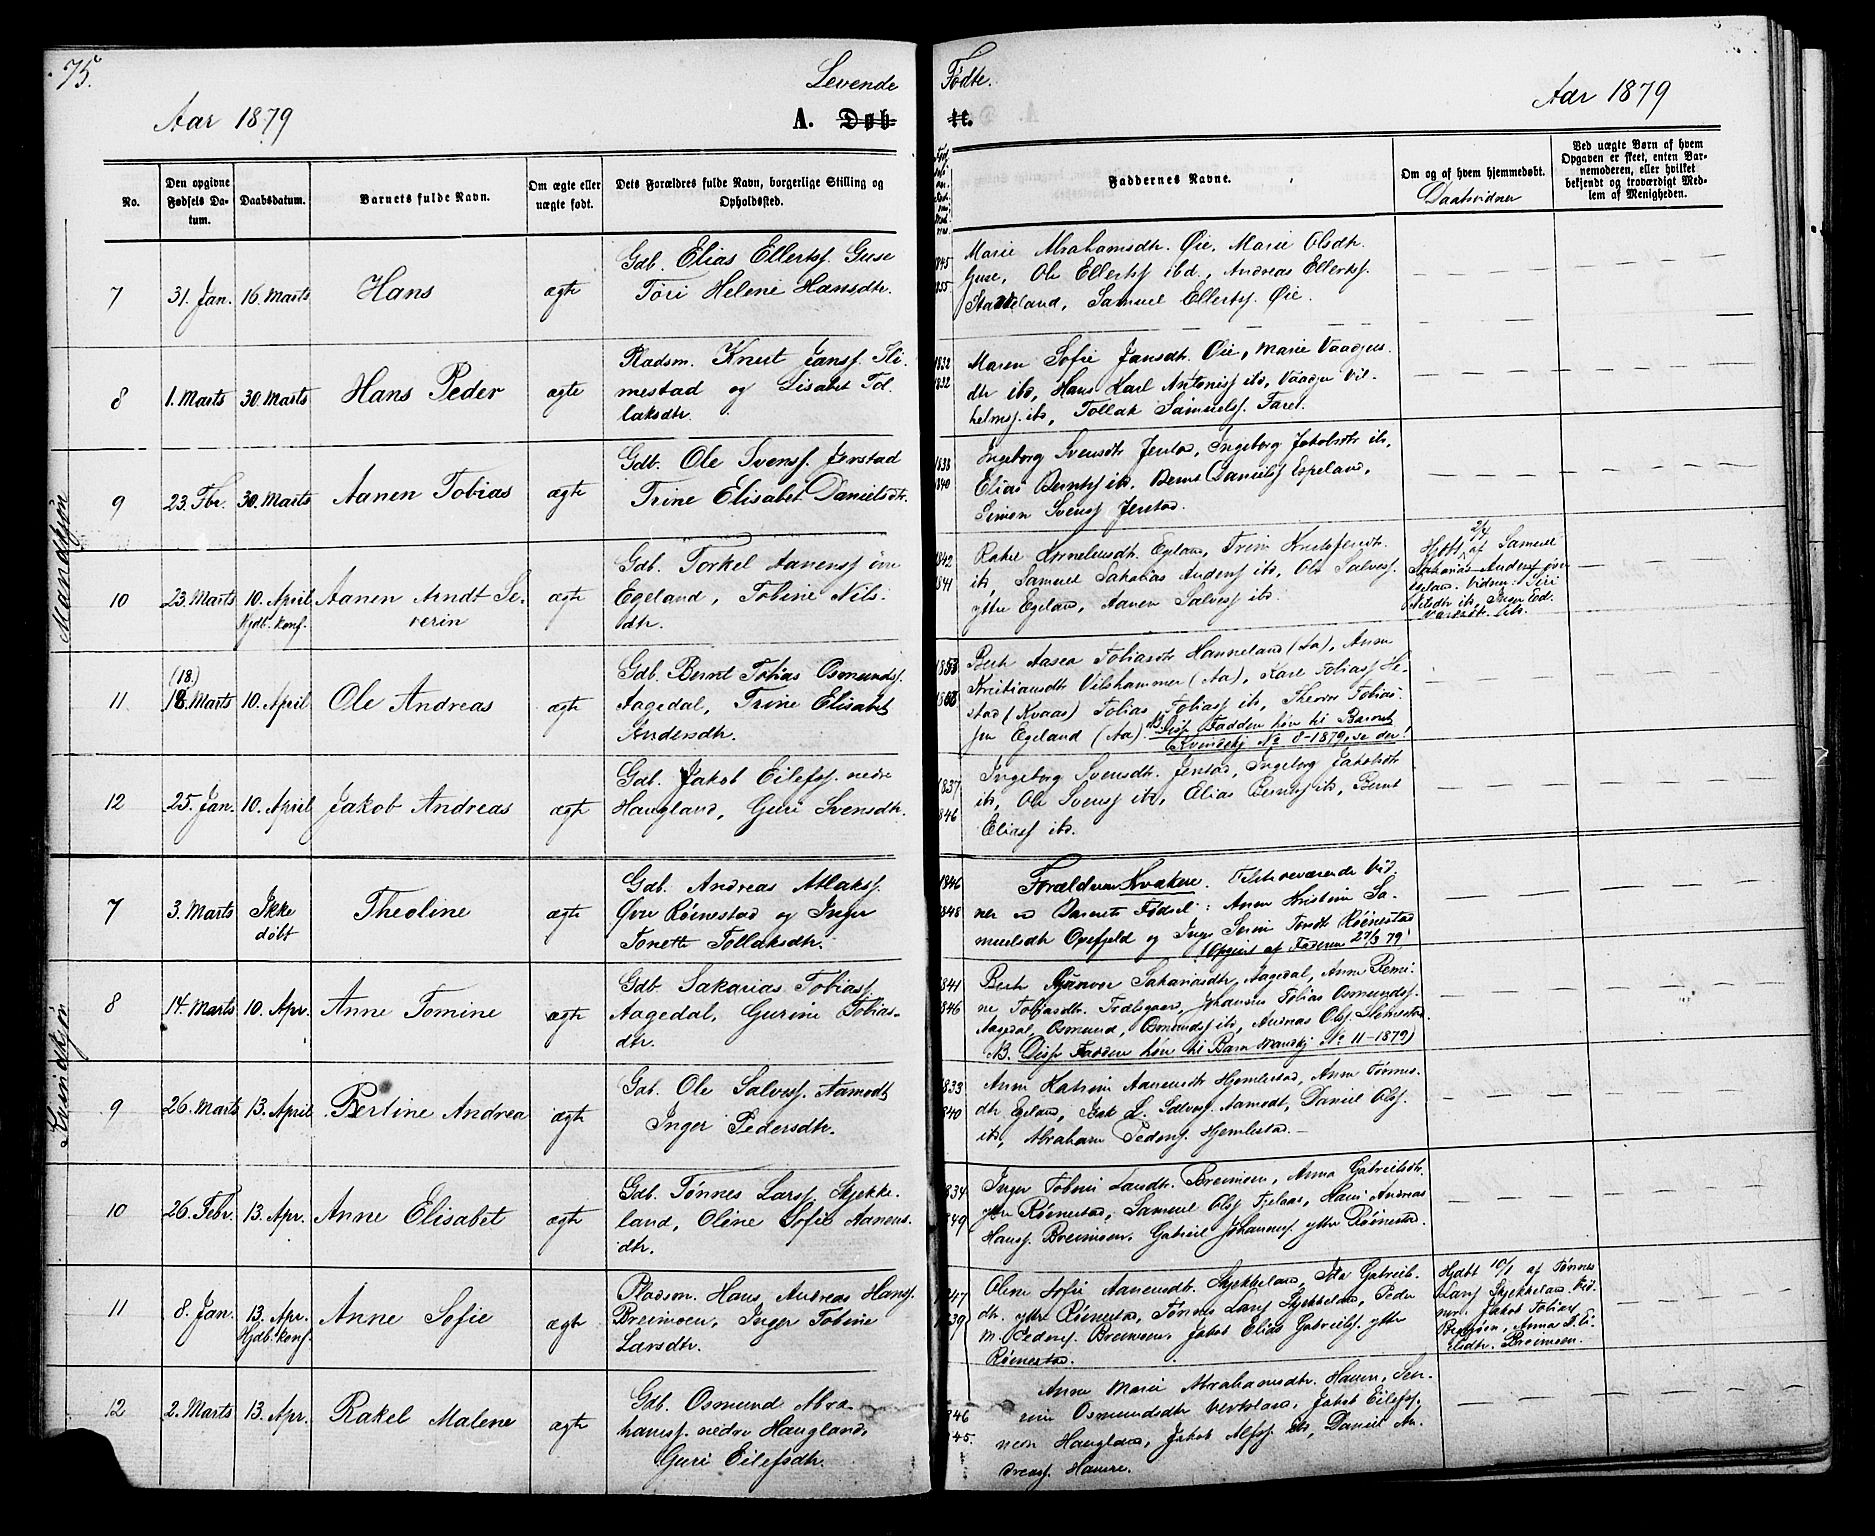 75.
Levende
Fødte.
Aar 1879
A. Døb-
te.
Aar 1879
No.
Den opgivne Fødsels Da-
tum.
Daabsdatum.
Barnets fulde Navn.
Om ægte eller
uægte født.
Dets Forældres fulde Navn, borgerlige Stilling og
Opholdssted.
Faddernes Navne.
Om og af hvem hjemmedøbt.
Daabsvidner
Ved uægte Børn af hvem
Opgaven er skeet, enten Bar-
nemoderen, eller hvilket
bekjendt og troværdigt Med-
lem af Menigheden.
Mandkjøn
7
31. Jan.
16. Marts
Hans
ægte
Gdb. Elias Ellertsf. Guse
Tøri Helene Hansdtr.
1845
1855
Marie Abrahamsdtr. Øie, Marie Olsdtr.
Guse, Ole Ellertsf ibd., Andreas Ellertsf.
Stakkeland, Samuel Ellertsf. Øie.
8
1. Marts
30. Marts
Hans Peder
ægte
Pladsm. Knut Jansf. Sli-
mestad og Lisabet Tol-
laksdtr.
1832
1832
Maren Sofie Jansdtr. Øie, Marie Vaages
dtr ibd, Hans Karl Antonisf ibd, Vaage Vil-
helmsf. ibd, Tollak Samuelsf. Faret.
9
23. Fbr.
30. Marts
Aanen Tobias
ægte
Gdb. Ole Svensf. Jerstad
Trine Elisabet Danielsdtr.
1838
1840
Ingeborg Svensdtr Jerstad, Ingeborg Jakobsdtr ib,
Elias Berntsf ibd, Bernt Danielsf Espeland,
Simon Svensf Jerstad.
10
23. Marts
10. April
Hjdb. konf.
Aanen Arndt Se-
verin
ægte
Gdb. Torkel Aanensf øvre
Egeland, Tobine Nils-
dtr.
1842
1841
Rakel Korneliusdtr. Egeland, Trine Kristofersdtr.
ib, Samuel Sakarias Andersf ibd, Ole Salvesf.
ytre Egeland, Aanen Salvesf ibd.
Hjdbt 2/4 af Samuel
Sakarias Andersf øvr
Egeland. Vidner: Siri
Nilsdtr ib, Inger Ed-
vardsdtr. ibd.
11
(18.)
18. Marts
10. April
Ole Andreas
ægte
Gdb. Bernt Tobias Osmundsf.
Aagedal, Trine Elisabet
Andersdtr.
1853
Berte Aasea Tobiasdtr Hanneland (Aa), Anne
Kristiansdtr Vilshammer (Aa), Karl Tobiasf He-
stad (Kvaas) Tobias Tobiasf ib, Tobias-
sen Egeland (Aa). NB. Disse Faddere høre til Barnet
Kvindekj No 8-1879, se der!
12
25. Jan.
10. April
Jakob Andreas
ægte
Gdb. Jakob Eilefsf. nedre
Haugland, Guri Svensdtr.
1837
1846
Ingeborg Svensdtr. Jerstad, Ingeborg Jakobsdtr
ib, Ole Svensf ib, Elias Berntsf ib, Bernt
Eliasf ibd.
Kvindekjøn
7
3. Marts
Ikke
døbt
Theoline
ægte
Gdb. Andreas Atlaksf.
Øvre Røinestad og Inger
Tonette Tollaksdtr.
1846
1848
Forældrene Kvækere. Tilstedeværende Vid-
ner ved Barnets Fødsel: Anne Kristine Sa-
muelsdtr Opefjeld og Inger Serine Røinestad
(Opgivet af Faderen 27/3 79)
8
14. Marts
10. Apr.
Anne Tomine
ægte
Gdb. Sakarias Tobiasf
Aagedal, Gurine Tobias-
dtr.
1841
1846
Berte Gunvor Sakariasdtr, Aagedal, Anne Remi-
ne Tobiasdtr. Fodlsgaard, Johannes Tobias Osmundsf.
Aagedal, Osmund, Osmundsf ib, Andreas Olsf.
NB. Disse Faddere høre til Barn Mandkj No 11-1879)
9
26. Marts
13. April
Bertine Andrea
ægte
Gdb. Ole Salvesf. Aamodt
Inger Pedersdtr.
1833
1840
Anne Katrine Aanensdtr Hjemlestad, Anne Tønnes-
dtr. Egeland, Isak L. Salvesf. Aamodt, Daniel Olsf.
ib, Abraham Pedersf. Hjemlestad.
10
26. Febr.
13. Apr.
Anne Elisabet
ægte
Gdb. Tønnes Larsf. Skjekke-
land, Oline Sofie Aanens-
dtr.
1834
1849
Inger Tobine Larsdtr. Breimoen, Anna Gabrielsdtr.
ytre Røinestad, Samuel Olsf Fjelaas, Hans Andreas
Hansf. Breimoen, Gabriel Johannesf ytre Røinestad.
11
8. Jan.
13. Apr.
Hjdb. konf.
Anne Sofie
ægte
Pladsm. Hans Andreas Hansf.
Breimoen, Inger Tobine
Larsdtr.
1847
1839
Oline Sofie Aanensdtr. Skjekkeland, Ida Gabriels-
dtr. ytre Røinestad, Tønnes Larsf Skjekkeland, Peder
M. Pedersf. Breimoen, Jakob Elias Gabrielsf. ytre
Røinestad.
Hjdbt 10/1 af Tønnes
Larsf Skjekkeland. Vid-
ner. Jakob Tobiasf
Anna
Breimoen.
12
2. Marts
13. Apr.
Rakel Malene
ægte
Gdb. Osmund Abra-
hamsf. nedre Haugland,
Guri Eilefsdtr.
1846
1845.
Anne Marie Abrahamsdtr. Hauen, Sen-
rine Osmundsdtr Verksland, Jakob Eilefsf.
nedre Haugland, Jakob Alfsf ib, Daniel An-
dreasf. Hauen.